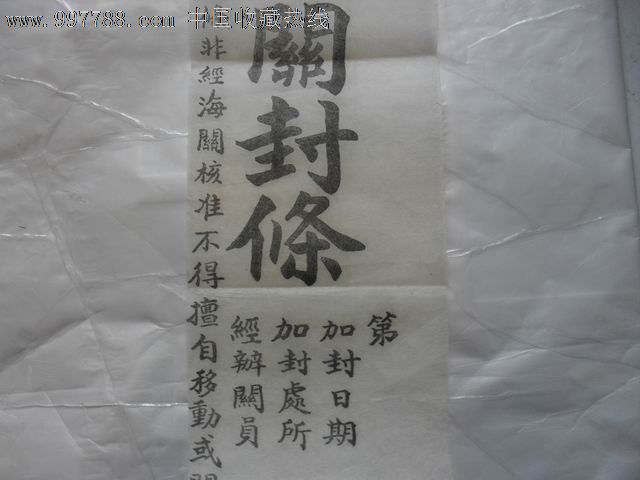 www.997788.com 中国收藏热线
關封條
第
加封日期
加封處所
經辦關員
非經海關核准不得擅自移動或